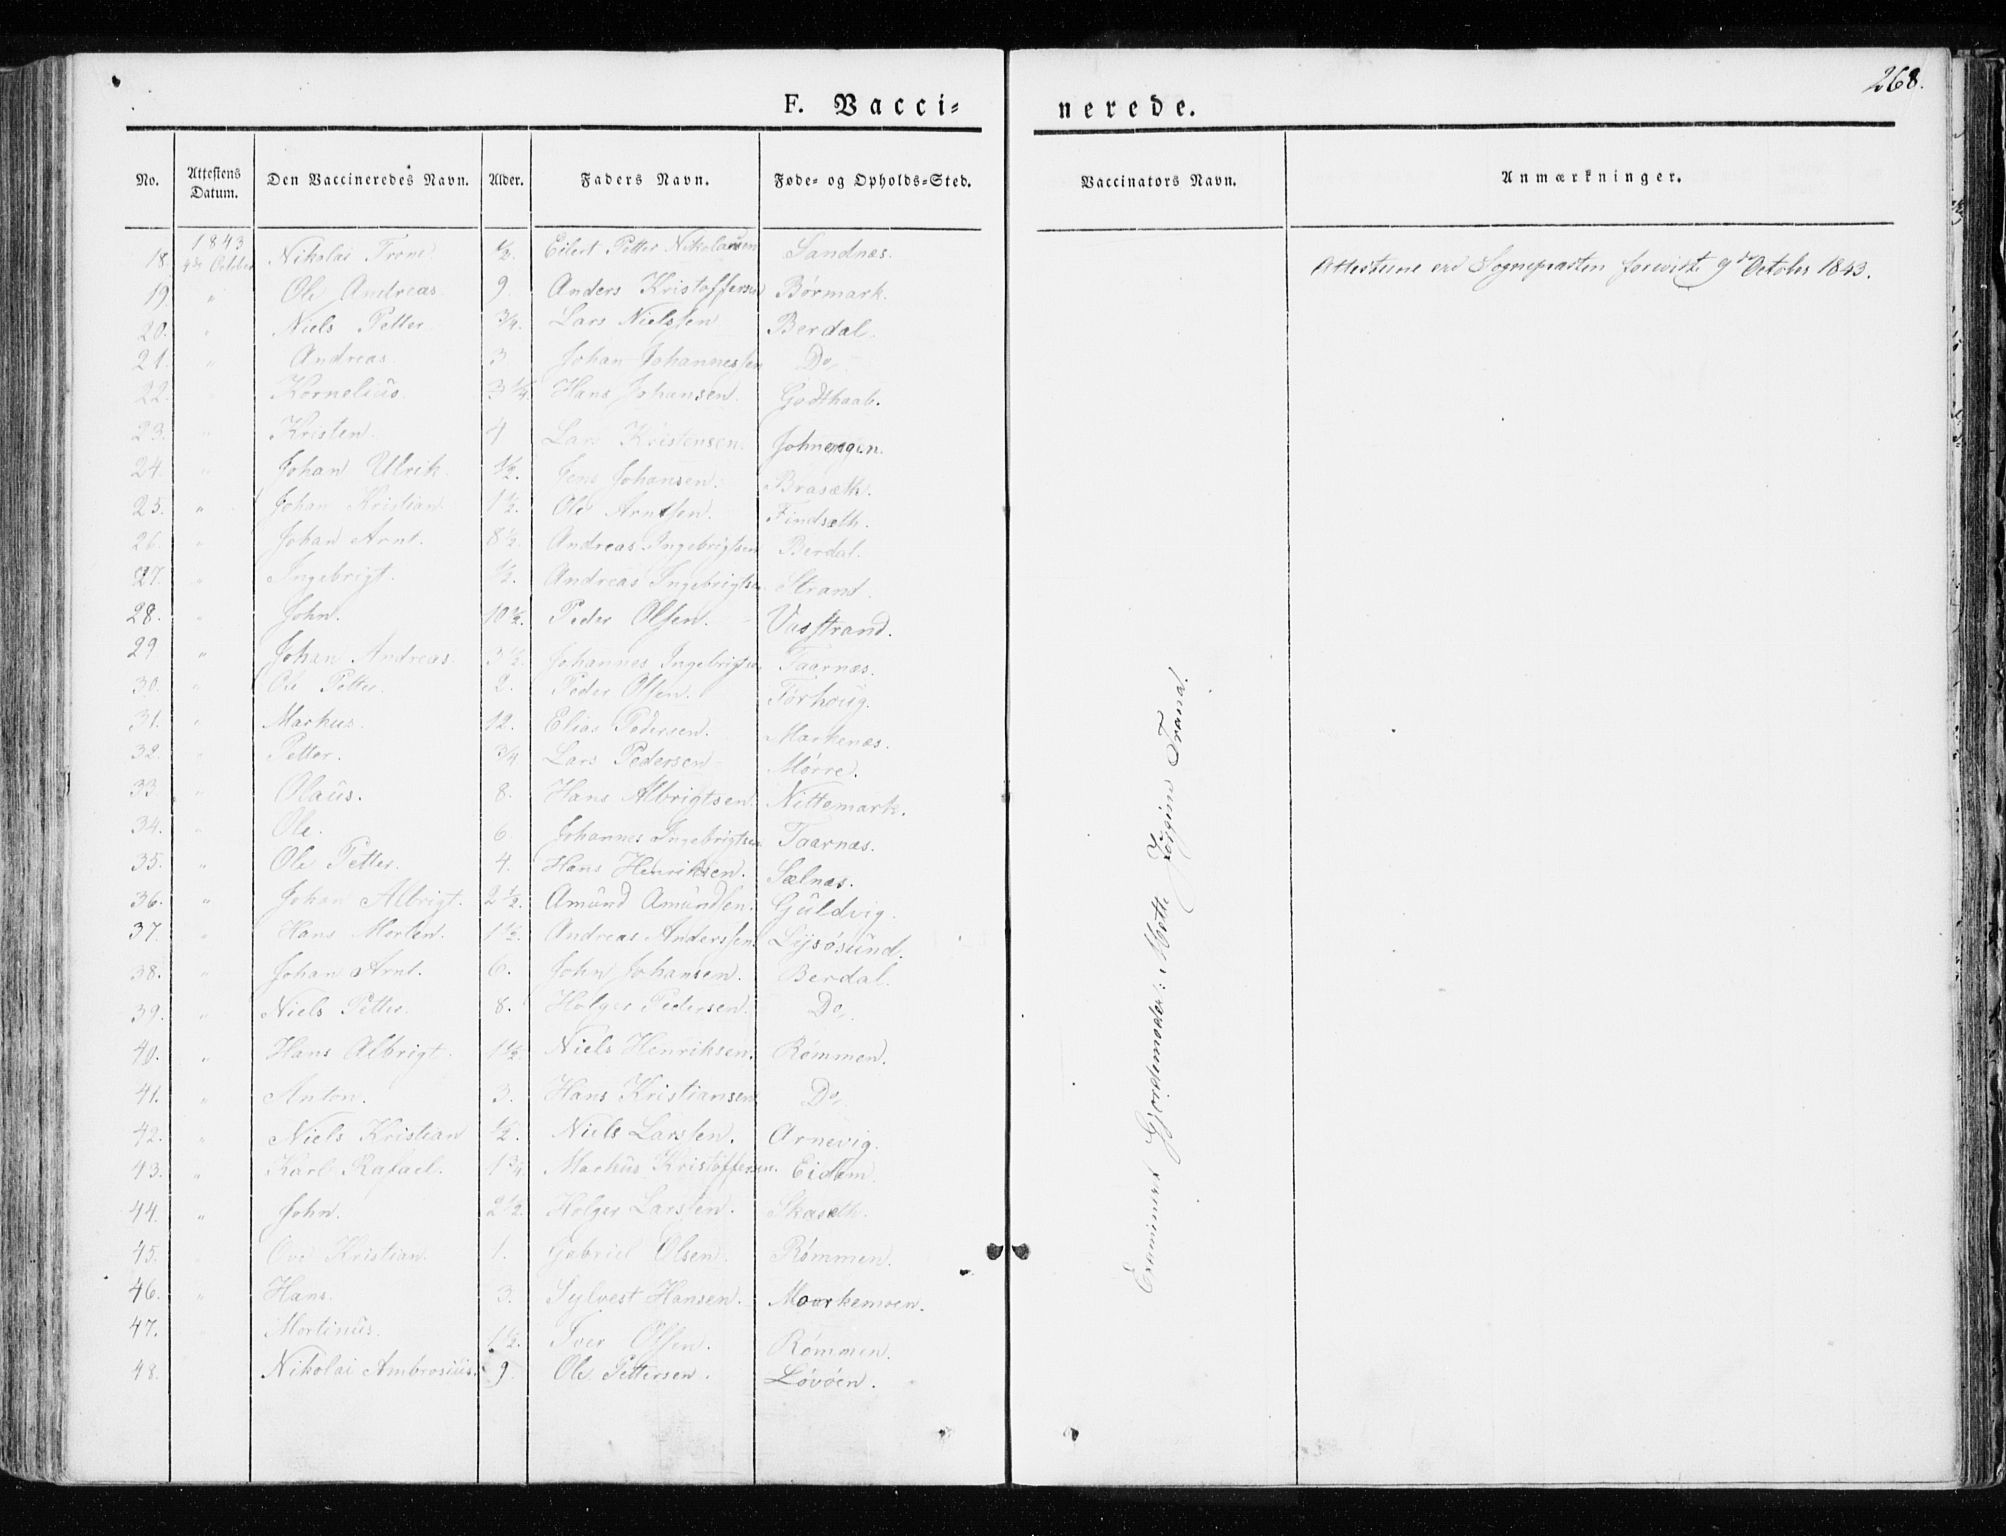 268.
F. Vacci=nerede.
No. Attestens Datum. Den Vaccineredes Navn. Alder. Faders Navn. Føde= og Opholds=Sted. Vaccinators Navn. Anmærkninger.
1843
18. 4de October Nikolai Trone ½. Eilert Petter Nikolaisen Sandnæs. Attesterne ere Sognepræsten foreviste 9de October 1843.
19. " Ole Andreas. 9. Anders Kristoffersen Bormark.
20. " Niels Petter. ¾. Lars Nielssen Berdal.
21. " Andreas. 3 Johan Johannessen Do.
22. " Kornelius. 3¼. Hans Johansen. Godthaab.
23. " Kristen. 4 Lars Kristensen.
24. " Johan Ulrik. ½. Jens Johansen. Brasæth.
25. " Johan Kristian 1½. Ole Arntsen. Findsæth.
26. " Johan Arnt. 8½. Andreas Ingebrigtsen Berdal.
27. " Ingebrigt. ½. Andreas Ingebrigtsen Strand.
28. " John. 10½. Peder Olsen. Vasstrand.
29 " Johan Andreas. 3½. Johannes Ingebrigtsen Taarnæs.
30. " Ole Petter. 2. Peder Olsen. Tørhoug.
31. " Markus. 12. Elias Pedersen. Markenæs.
32. " Petter. ¾ Lars Pedersen Mørre.
33 " Olaus. 8. Hans Albrigtsen. Nittemark.
34. " Ole. 6 Johannes Ingebrigtsen Taarnæs.
35. " Ole Petter. 4. Hans Henriksen. Sælnæs.
36. " Johan Albrigt. 2½. Amund Amundsen. Guldvig.
37. " Hans Morten. 1½. Andreas Anderssen. Lysøsund.
38. " Johan Arnt. 6. John Johansen. Berdal.
39. " Niels Petter. 8. Holger Pedersen. Do.
40. " Hans Albrigt. 1½ Niels Henriksen. Rømmen.
41. " Anton. 3. Hans Kristiansen Do.
42. " Niels Kristian ½. Niels Larssen. Arnevig.
43. " Karl Rafael. 1¾ Markus Kristoffersen. Eidem.
44. " John. 2½. Holger Larssen. Skasæth.
45. " Ove Kristian. 1. Gabriel Olsen. Rømmen.
46. " Hans. 3. Sylvest Hansen. Moorkemoen.
47. " Mortinus. 1½. Iver Olsen. Rømmen.
48. Nikolai Ambrosius. 9. Ole Pettersen. Løvøen.
Examineret Gjordemoder: Mette Jørgine Trana.